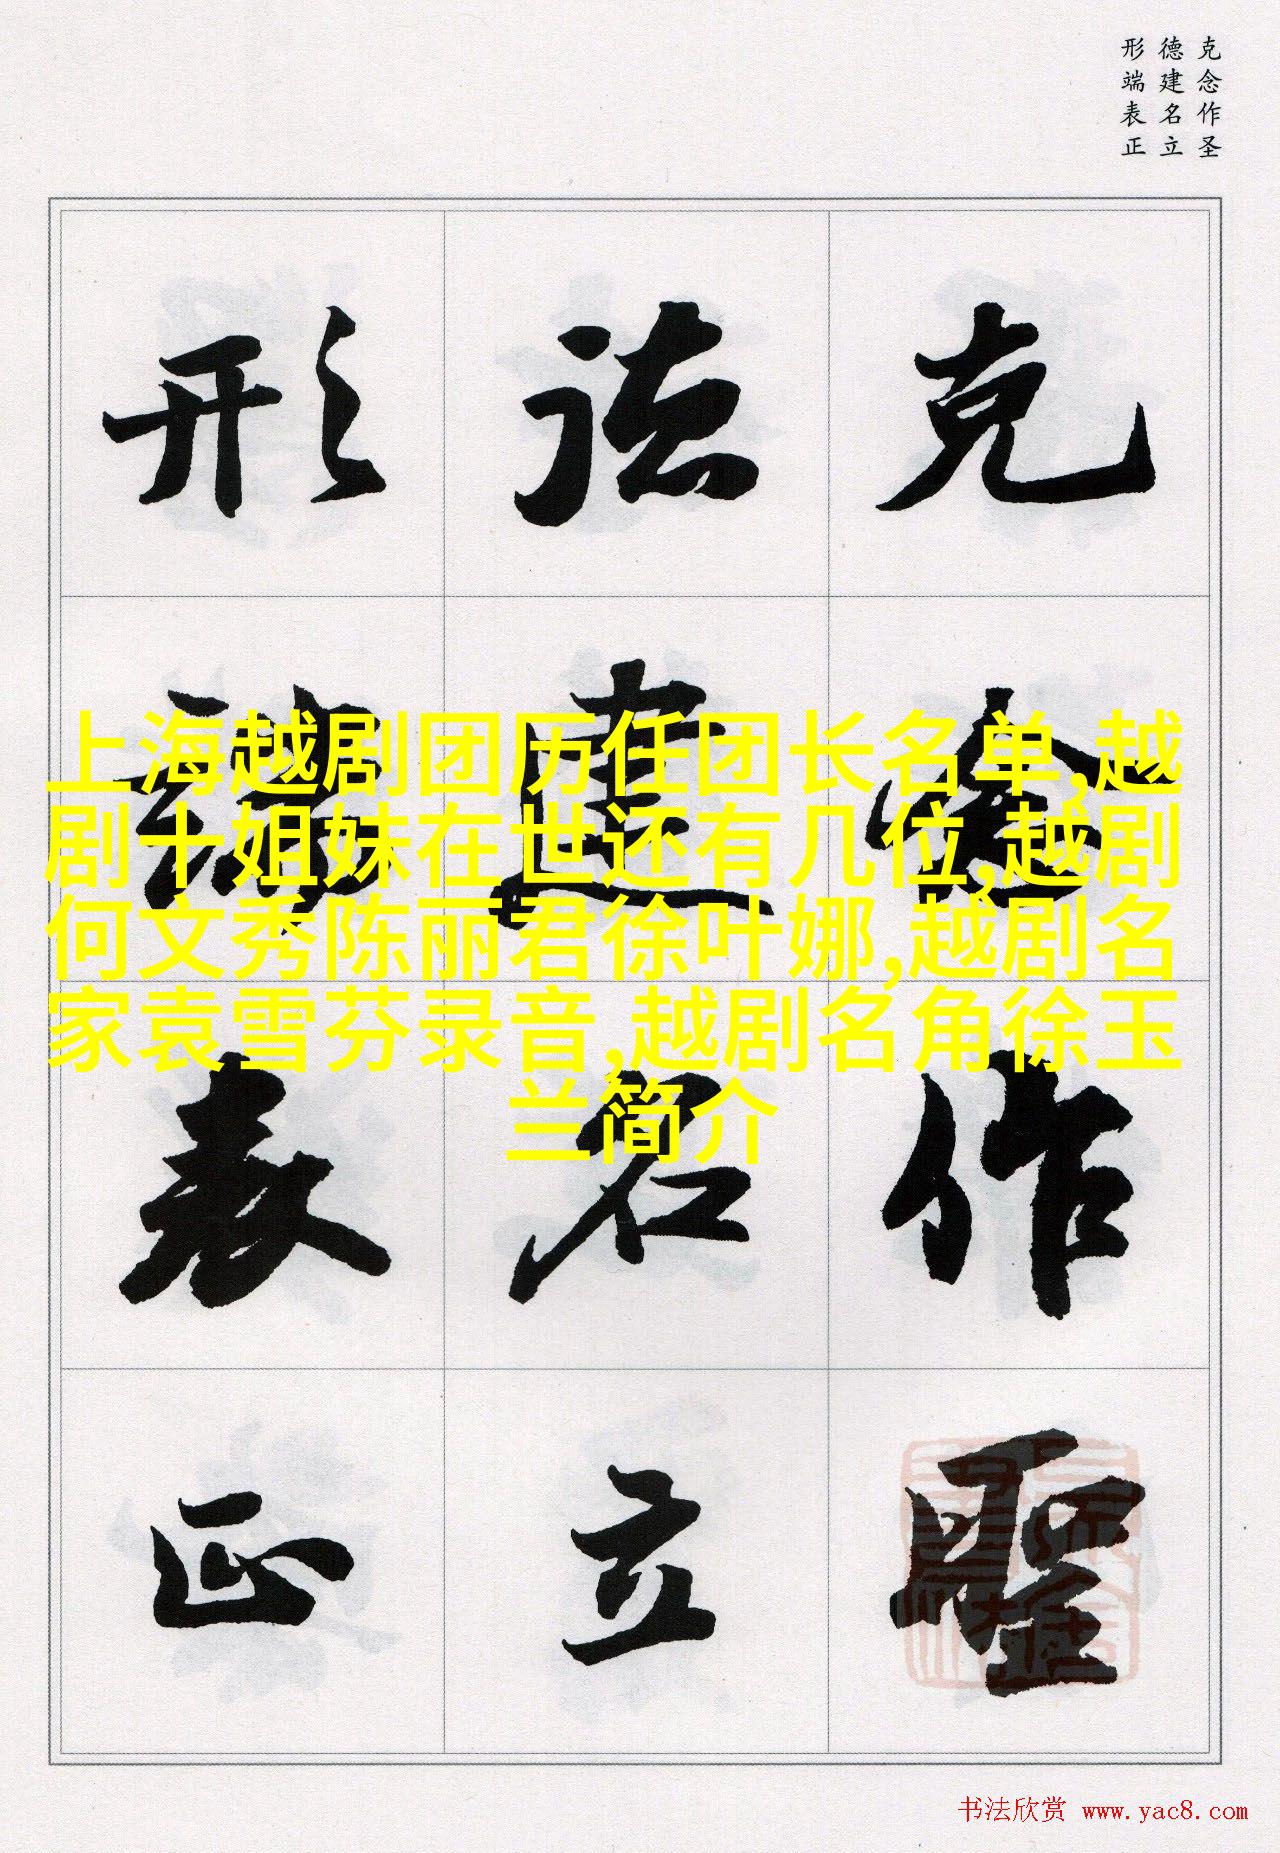 克念作圣
德建名立
形端表正
克念作聖
德建名立
形端表正
上海越剧团历任团长名单,越
剧十姐妹在世还有几位,越剧
何文秀陈丽君徐叶娜,越剧名
家袁雪芬录音,越剧名角徐玉
兰简介
书法欣赏 www.yac8.com